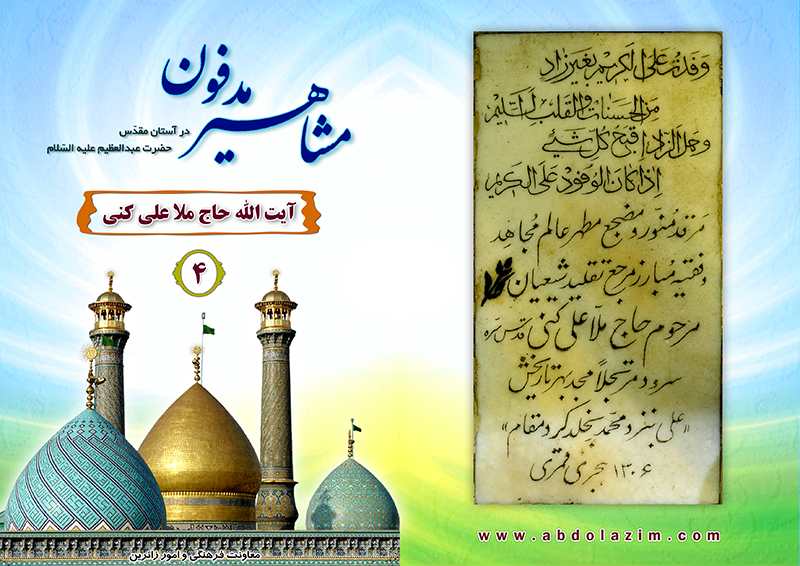 مشاهیر مدفون
در آستان مقدّس
حضرت عبدالعظیم علیه السّلام
آیت الله حاج ملا علی کنی
۴
معاونت فرهنگی و امور زائرین
وفدت علی الکریم بغیر زاد
من الحسنات والقلب السلیم
وحمل الزاد اقبح کل شیئ
اذا کان الوفود علی الکریم
مرقد منور و مضجع مطهر عالم مجاهد
و فقیه مبارز مرجع تقلید شیعیان
مرحوم حاج ملا علی کنی قدس سره
سرود مرتجلاً مجد بهر تاریخش
«علی بنزد محمد بخلد کرد مقام»
۱۳۰۶ هجری قمری
www.abdolazim.com